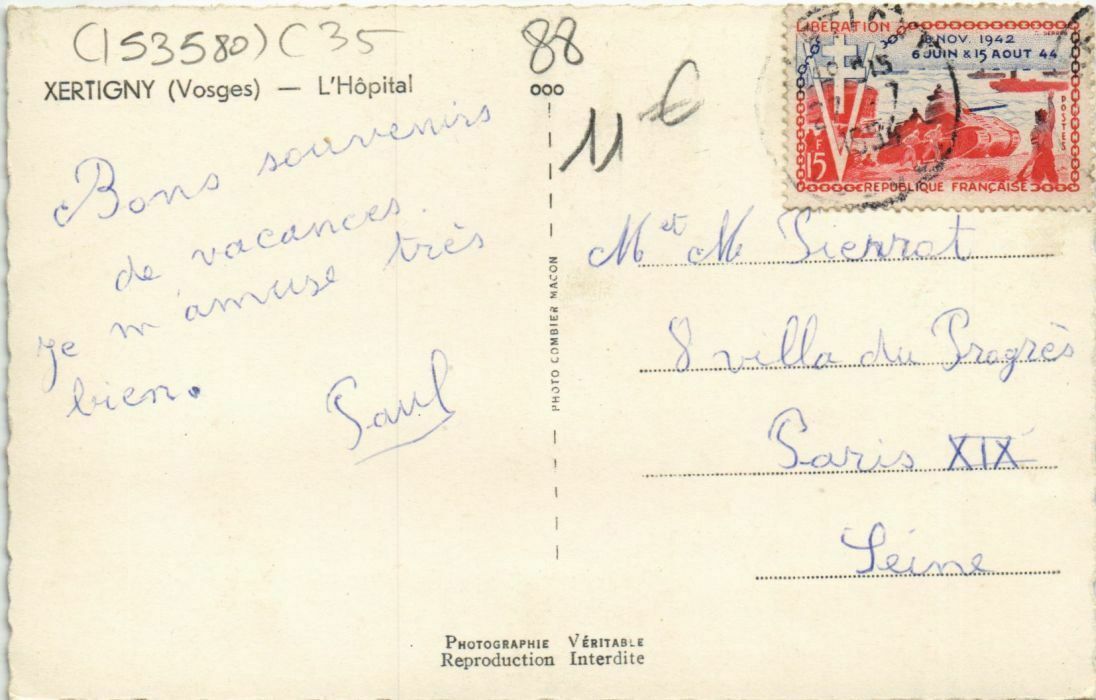 (153580) C 35
88
XERTIGNY (Vosges) — L'Hôpital
000
11 €
Bons souvenirs
de vacances.
Je m'amuse très
bien.
Paul
PHOTO COMBIER MACON
LIBERATION
8 NOV. 1942
6 JUIN & 15 AOUT 44
POSTES
15 F
REPUBLIQUE FRANÇAISE
1954
M et M Pierrat
8 villa du Progrès
Paris XIX
Seine
PHOTOGRAPHIE VÉRITABLE
Reproduction Interdite